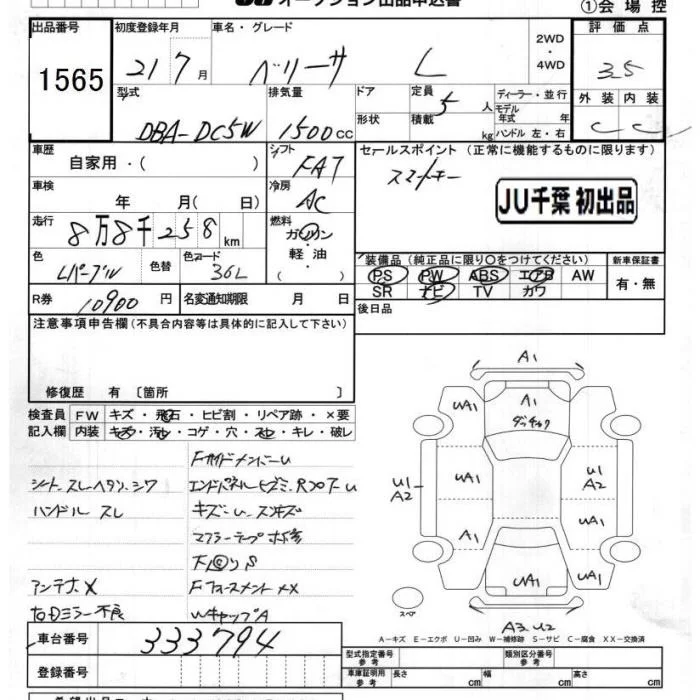 オークション出品申込書
①会場控
出品番号 初度登録年月 車名・グレード 評価点
1565 21 7 月 ベリーサ L 2WD ・ 4WD 3.5
型式 排気量 ドア 定員 5 人 ディーラー・並行 外装 内装
DBA-DC5W 1500 cc 形状 積載 kg モデル年式 年 ハンドル 左・右 C C
車歴 自家用・( ) シフト FAT セールスポイント (正常に機能するものに限ります)
スマートキー
車検 年 月( 日) 冷房 AC
JU千葉 初出品
走行 8万8千258 km 燃料 ガソリン・軽油 ( )
色 Lパープル 色替 色コード 36L
装備品 (純正品に限り○をつけてください) 新車保証書
PS PW ABS エアB AW 有・無
SR ナビ TV カワ
R券 10900 円 名変通知期限 月 日 後日品
注意事項申告欄 (不具合内容等は具体的に記入して下さい)
修復歴 有 〔箇所 〕
検査員 FW キズ・飛石・ヒビ割・リペア跡・×要
記入欄 内装 キズ・汚れ・コゲ・穴・スレ・キレ・破レ
FサイドメンバーU
シート スレヘタリシワ
ハンドル スレ
アンテナ X
右Dミラー不良
WキャップA
A1
UA1 A1 UA1
UA1 U1 A2
U1 A2
A1 UA1
UA1 UA1
スペア
A3 U2
A-キズ E-エクボ U-凹み W-補修跡 S-サビ C-腐食 XX-交換済
車台番号 333794
登録番号
型式指定番号 参考 類別区分番号 参考
車庫証明用 参考 長さ cm 幅 cm 高さ cm